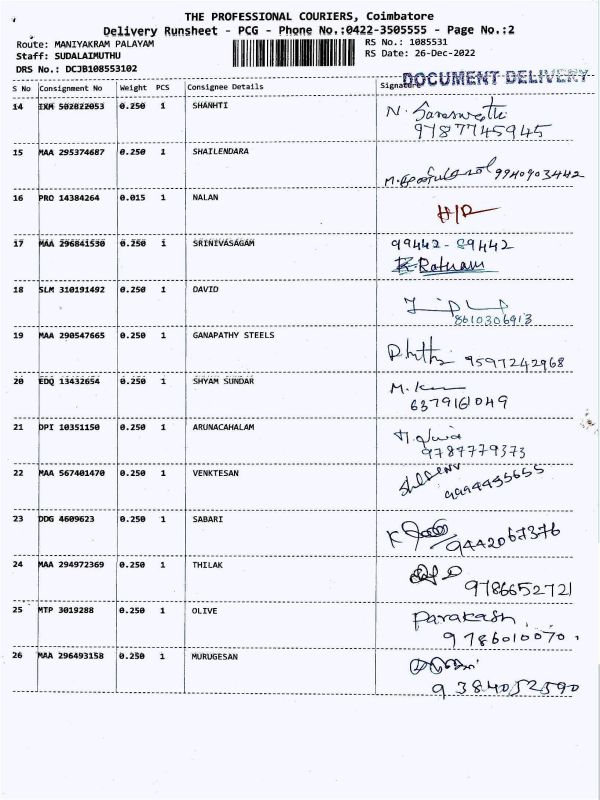 THE PROFESSIONAL COURIERS, Coimbatore
Delivery Runsheet - PCG - Phone No.:0422-3505555 - Page No.:2
Route: MANIYAKRAM PALAYAM
RS No.: 1085531
Staff: SUDALAIMUTHU
RS Date: 26-Dec-2022
DRS No.: DCJB108553102
DOCUMENT DELIVERY
S No Consignment No Weight PCS Consignee Details Signature
14 IXM 502022053 0.250 1 SHANHTI N. Saraswathi
9787745945
15 MAA 295374687 0.250 1 SHAILENDARA
9940903442
16 PRO 14384264 0.015 1 NALAN
H/R
17 MAA 296841530 0.250 1 SRINIVASAGAM 99442-89442
R. Ratnam
18 SLM 310191492 0.250 1 DAVID
8610306913
19 MAA 290547665 0.250 1 GANAPATHY STEELS
9597242968
20 EDQ 13432654 0.250 1 SHYAM SUNDAR
6379161049
21 DPI 10351150 0.250 1 ARUNACAHALAM
9787779373
22 MAA 567401470 0.250 1 VENKTESAN
9994495655
23 DDG 4609623 0.250 1 SABARI
9442067376
24 MAA 294972369 0.250 1 THILAK
9786652721
25 MTP 3019288 0.250 1 OLIVE Parakash
9786010070
26 MAA 296493158 0.250 1 MURUGESAN
9384052590